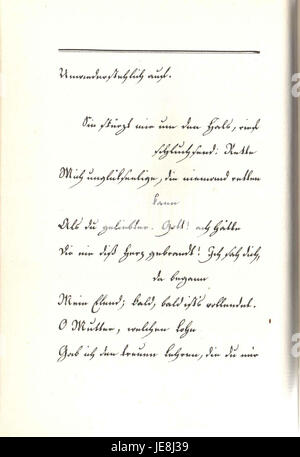 Unwiederstehlich auf.
Sie stürzt mir um den Hals, rief
schluchsend: Rette
Mich unglükseelige, die niemand retten
kann
Als du geliebter. Gott! ach hätte
Dir nie diß Herz gebrandt! Ich sah dich,
da begann
Mein Elend; bald, bald ist's vollendet.
O Mutter, welchen Lohn
Gab ich den treuen Lehren, die du mir
alamy
JE8J39